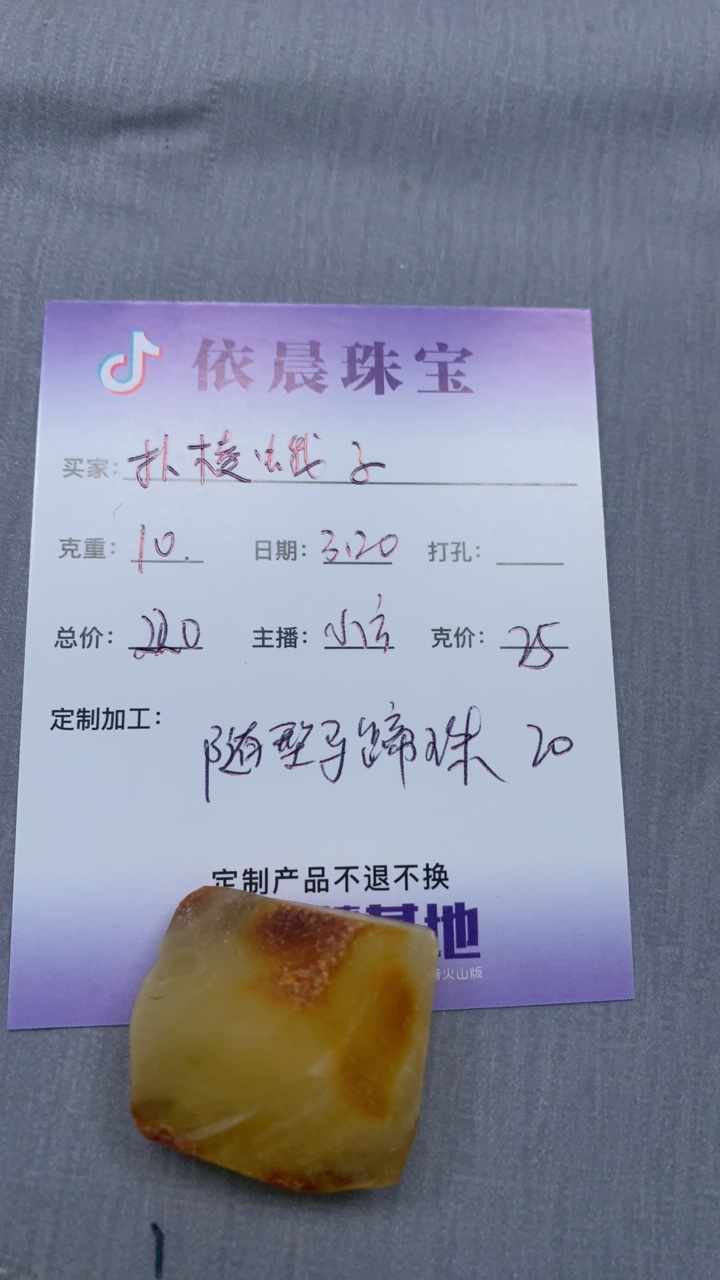 依晨珠宝
买家: 扑棱蛾子
克重: 10. 日期: 3.20 打孔:
总价: 220 主播: 小六 克价: 25
定制加工: 随型马蹄珠 20
定制产品不退不换
基地
火山版